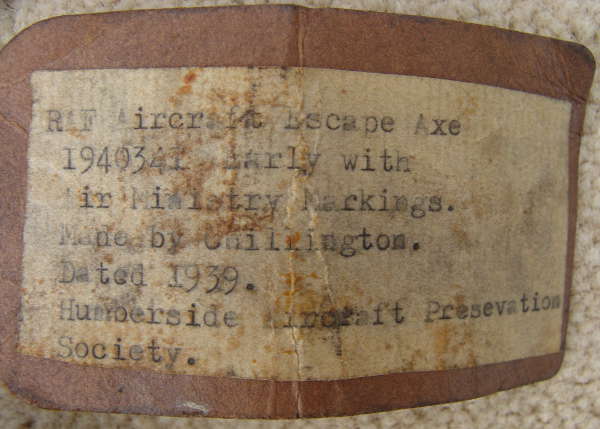 RAF Aircraft Escape Axe
1940341 Early with
Air Ministry Markings.
Made by Chillington.
Dated 1939.
Humberside Aircraft Presevation
Society.